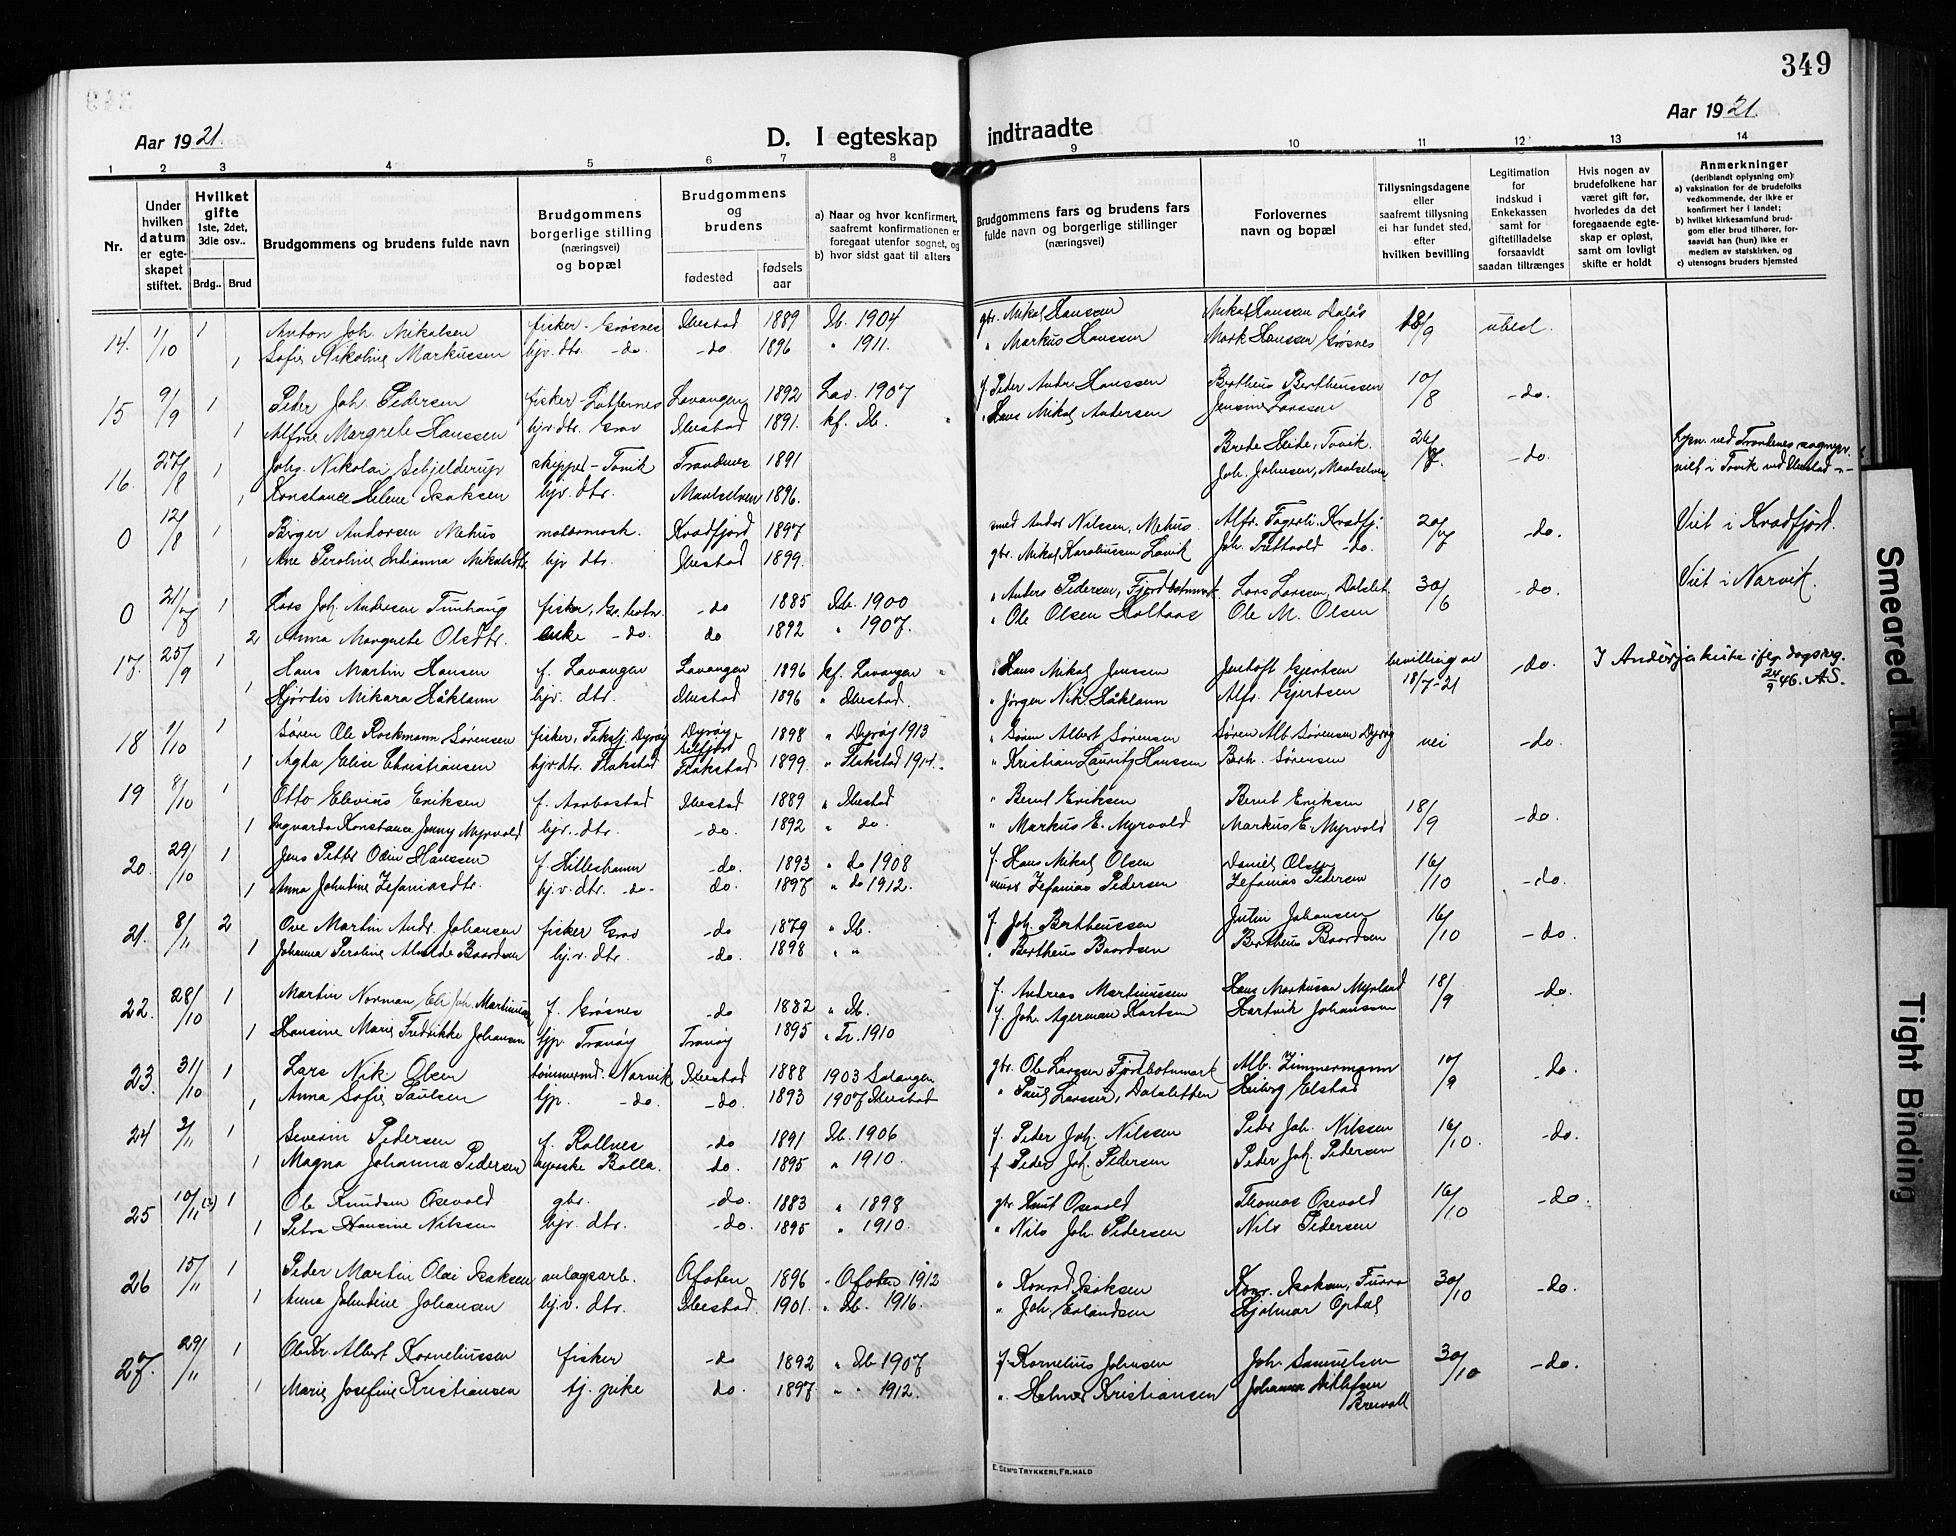 349
Aar 1921.
D. I egteskap indtraadte
Aar 1921.
1 2 3 4 5 6 7 8 9 10 11 12 13 14
Nr.
Under hvilken datum er egteskapet stiftet.
Hvilket gifte 1ste, 2det, 3die osv..
Brdg.. Brud
Brudgommens og brudens fulde navn
Brudgommens borgerlige stilling (næringsvei) og bopæl
Brudgommens og brudens
fødested
fødsels aar
a) Naar og hvor konfirmert, saafremt konfirmationen er foregaat utenfor sognet, og
b) hvor sidst gaat til alters
Brudgommens fars og brudens fars fulde navn og borgerlige stillinger (næringsvei)
Forlovernes navn og bopæl
Tillysningsdagene eller saafremt tillysning ei har fundet sted, efter hvilken bevilling
Legitimation for indskud i Enkekassen samt for giftetilladelse forsaavidt saadan tiltrænges
Hvis nogen av brudefolkene har været gift før, hvorledes da det foregaaende egteskap er opløst, samt om lovligt skifte er holdt
Anmerkninger (deriblandt oplysning om):
a) vaksination for de brudefolks vedkommende, der ikke er konfirmert her i landet;
b) hvilket kirkesamfund brudgom eller brud tilhører, forsaavidt han (hun) ikke er medlem av statskirken, og
c) utensogns bruders hjemsted
14. 1/10 1 Anton Joh. Mikalsen fisker - Grøsnes Ibestad 1889 Ib. 1904 gbr. Mikal Hanssen Mikal Hanssen 18/9 ubest.
1 Sofie Nikoline Markussen hjv. dtr. - do. - do 1896 " 1911. " Markus Hanssen Mark Hanssen Grøsnes
15 9/9 1 Peder Joh. Pedersen fisker Lavangen 1892 Lav. 1907 f. Peder Andr. Hanssen Bertheus Bertheussen 10/8 - do.
1 Alfine Margrete Hanssen hjv. dtr. Grov Ibestad 1891. kf. Ib. " Hans Mikal Andersen Jensine Larssen
16. 27/8 1 Johs. Nikolai Schjelderup skipper - Tovik Trondenes 1891 Brede Heide, Tovik. 26/7 - do. ved Trondenes sognepr.
1 Konstance Helene Isaksen hjv. dtr. Maalselven 1896. Joh. Johnsen, Maalselven viet i Tovik ved Ibestad
0 12/8 1 Birger Andorsen Mehus motormask. Kvædfjord 1897 med Andor Nilssen, Mehus. Alfr. Fagerli. Kvædfj. 20/7 - do. Viet i Kvædfjord.
1 Ane Peroline Indianna Mikalsdtr hjv dtr. Ibestad 1899. gbr. Mikal Karoliussen Lavik Joh. Trettvold - do.
0 21/7 1 Lars Joh. Andersen Tunhaug fisker, - do 1885 Ib. 1900 " Anders Pedersen, Fjordbotnmark Lars Larsen, 30/6 - do. Viet i Narvik.
2 Anna Margrete Olsdtr. enke - do. do 1892 " 1907. " Ole Olsen Holtaas Ole M. Olsen
17. 25/9 1 Hans Martin Hansen f. Lavangen Lavangen 1896 kf. Lavangen " Hans Mikal Jenssen Jentoft Gjertsen bevilling av - do. I Anderja kirke dagsreg.
1 Hjørdis Mikara Håklann hjv. dtr. Ibestad 1896 " Ibestad. " Jørgen Nik. Håklann Alfr. Gjertsen 18/7-21 24/9 46. A.S.
18 1/10 1 Søren Ole Rockmann Sørensen fisker, Dyrøy Dyrøy 1898 " Dyrøy 1913 " Søren Albert Sørensen Søren Alb. Sørensen Dyrøy nei - do.
1 Agda Elise Christiansen hjv. dtr. Flakstad Flakstad 1899. " Flakstad 1914. " Kristian Lauritz Hansen Berh. Sørensen
19 8/10 1 Otto Elevius Eriksen f. Aarbostad Ibestad 1889 " Ibestad " Bernt Eriksen Bernt Eriksen 18/9 - do.
1 Ingvarda Konstance Jenny Myrvold hjv. dtr. - do. 1892 " do. " Markus E. Myrvold Markus E. Myrvold
20. 29/10 1 Jens Petter Odin Hanssen f. Hilleshamn - do. 1893 " do 1908 f. Hans Mikal Olsen Daniel Olsen 16/10 - do.
1 Anna Johntine Zefaniasdtr. hj. v. dtr. - do - do. 1897 " do 1912. Zefanias Pedersen Zefanias Pedersen
21. 8/11 2 Ove Martin Andr. Johansen fisker Grov - do 1879 " Ib. f. Joh. Bertheussen Justin Johansen 16/10 - do.
1 Johanna Peroline Alvilde Baardsen hj. v. dtr. - do. 1898 " " " Bertheus Baardsen Bertheus Baardsen
22. 28/10 1 Martin Norman Eli Joh. Martinussen f. Grøsnes - do 1882 " Ib. f. Andreas Martinussen Hans Markussen Myrland 18/9 - do.
1 Hansine Marie Fredrikke Johansen tjp. Tranøy Tranøy 1895 " Tr. 1910 f. Joh. Agerman Hartsen Hartvik Johanssen
23. 31/10 1 Lars Nik Olsen tømmermd. Narvik Ibestad 1888 1903 Salangen gbr. Ole Larsen Fjordbotnmark Alb. Zimmermann 10/9 - do.
1 Anna Sofie Paulsen tjp. - do. - do. 1893 1907 Ibestad " Paul Larssen, Dalsletten Heiberg Elstad
24 2/11 1 Severin Pedersen f. Rollnes - do 1891 Ib. 1906 f. Peder Joh. Nilssen Peder Joh. Nilssen 16/10. - do.
1 Magna Johanna Pedersen Bolla. do. 1895 " 1910. f. Peder Joh. Pedersen Peder Joh. Pedersen
25 10/11 (2) 1 Ole Knudsen Osevold gbr. - do. 1883 " 1898 gbr. Knut Osevold Thomas Osevold 16/10 - do.
1 Petra Hansine Nilssen hjv. dtr. - do. 1895 " 1910. " Nils Joh. Pedersen Nils Pedersen
26 15/11 1 Peder Martin Olai Isaksen anlægsarb. Ofoten 1896 - Ofoten 1912 " Konrad Isaksen Konr. Isaksen, Furro 30/10 - do.
1 Anna Johntine Johansen hj. v. dtr. Ibestad. 1901. " Ib. 1916. " Joh. Erlandsen Hjalmar Opdal
27. 29/11 1 Ole Kr. Albert Korneliussen fisker - do 1892 " Ib 1907 f. Kornelius Johnsen Joh. Samuelsen 30/10 - do.
1 Marie Josefine Kristiansen tj. pike do. 1897 " " 1912. " Helmer Kristiansen Johanna Ditlefsen Breivoll
E. SEM'S TRYKKERI, FR.HALD
Smeared Ink
Tight Binding